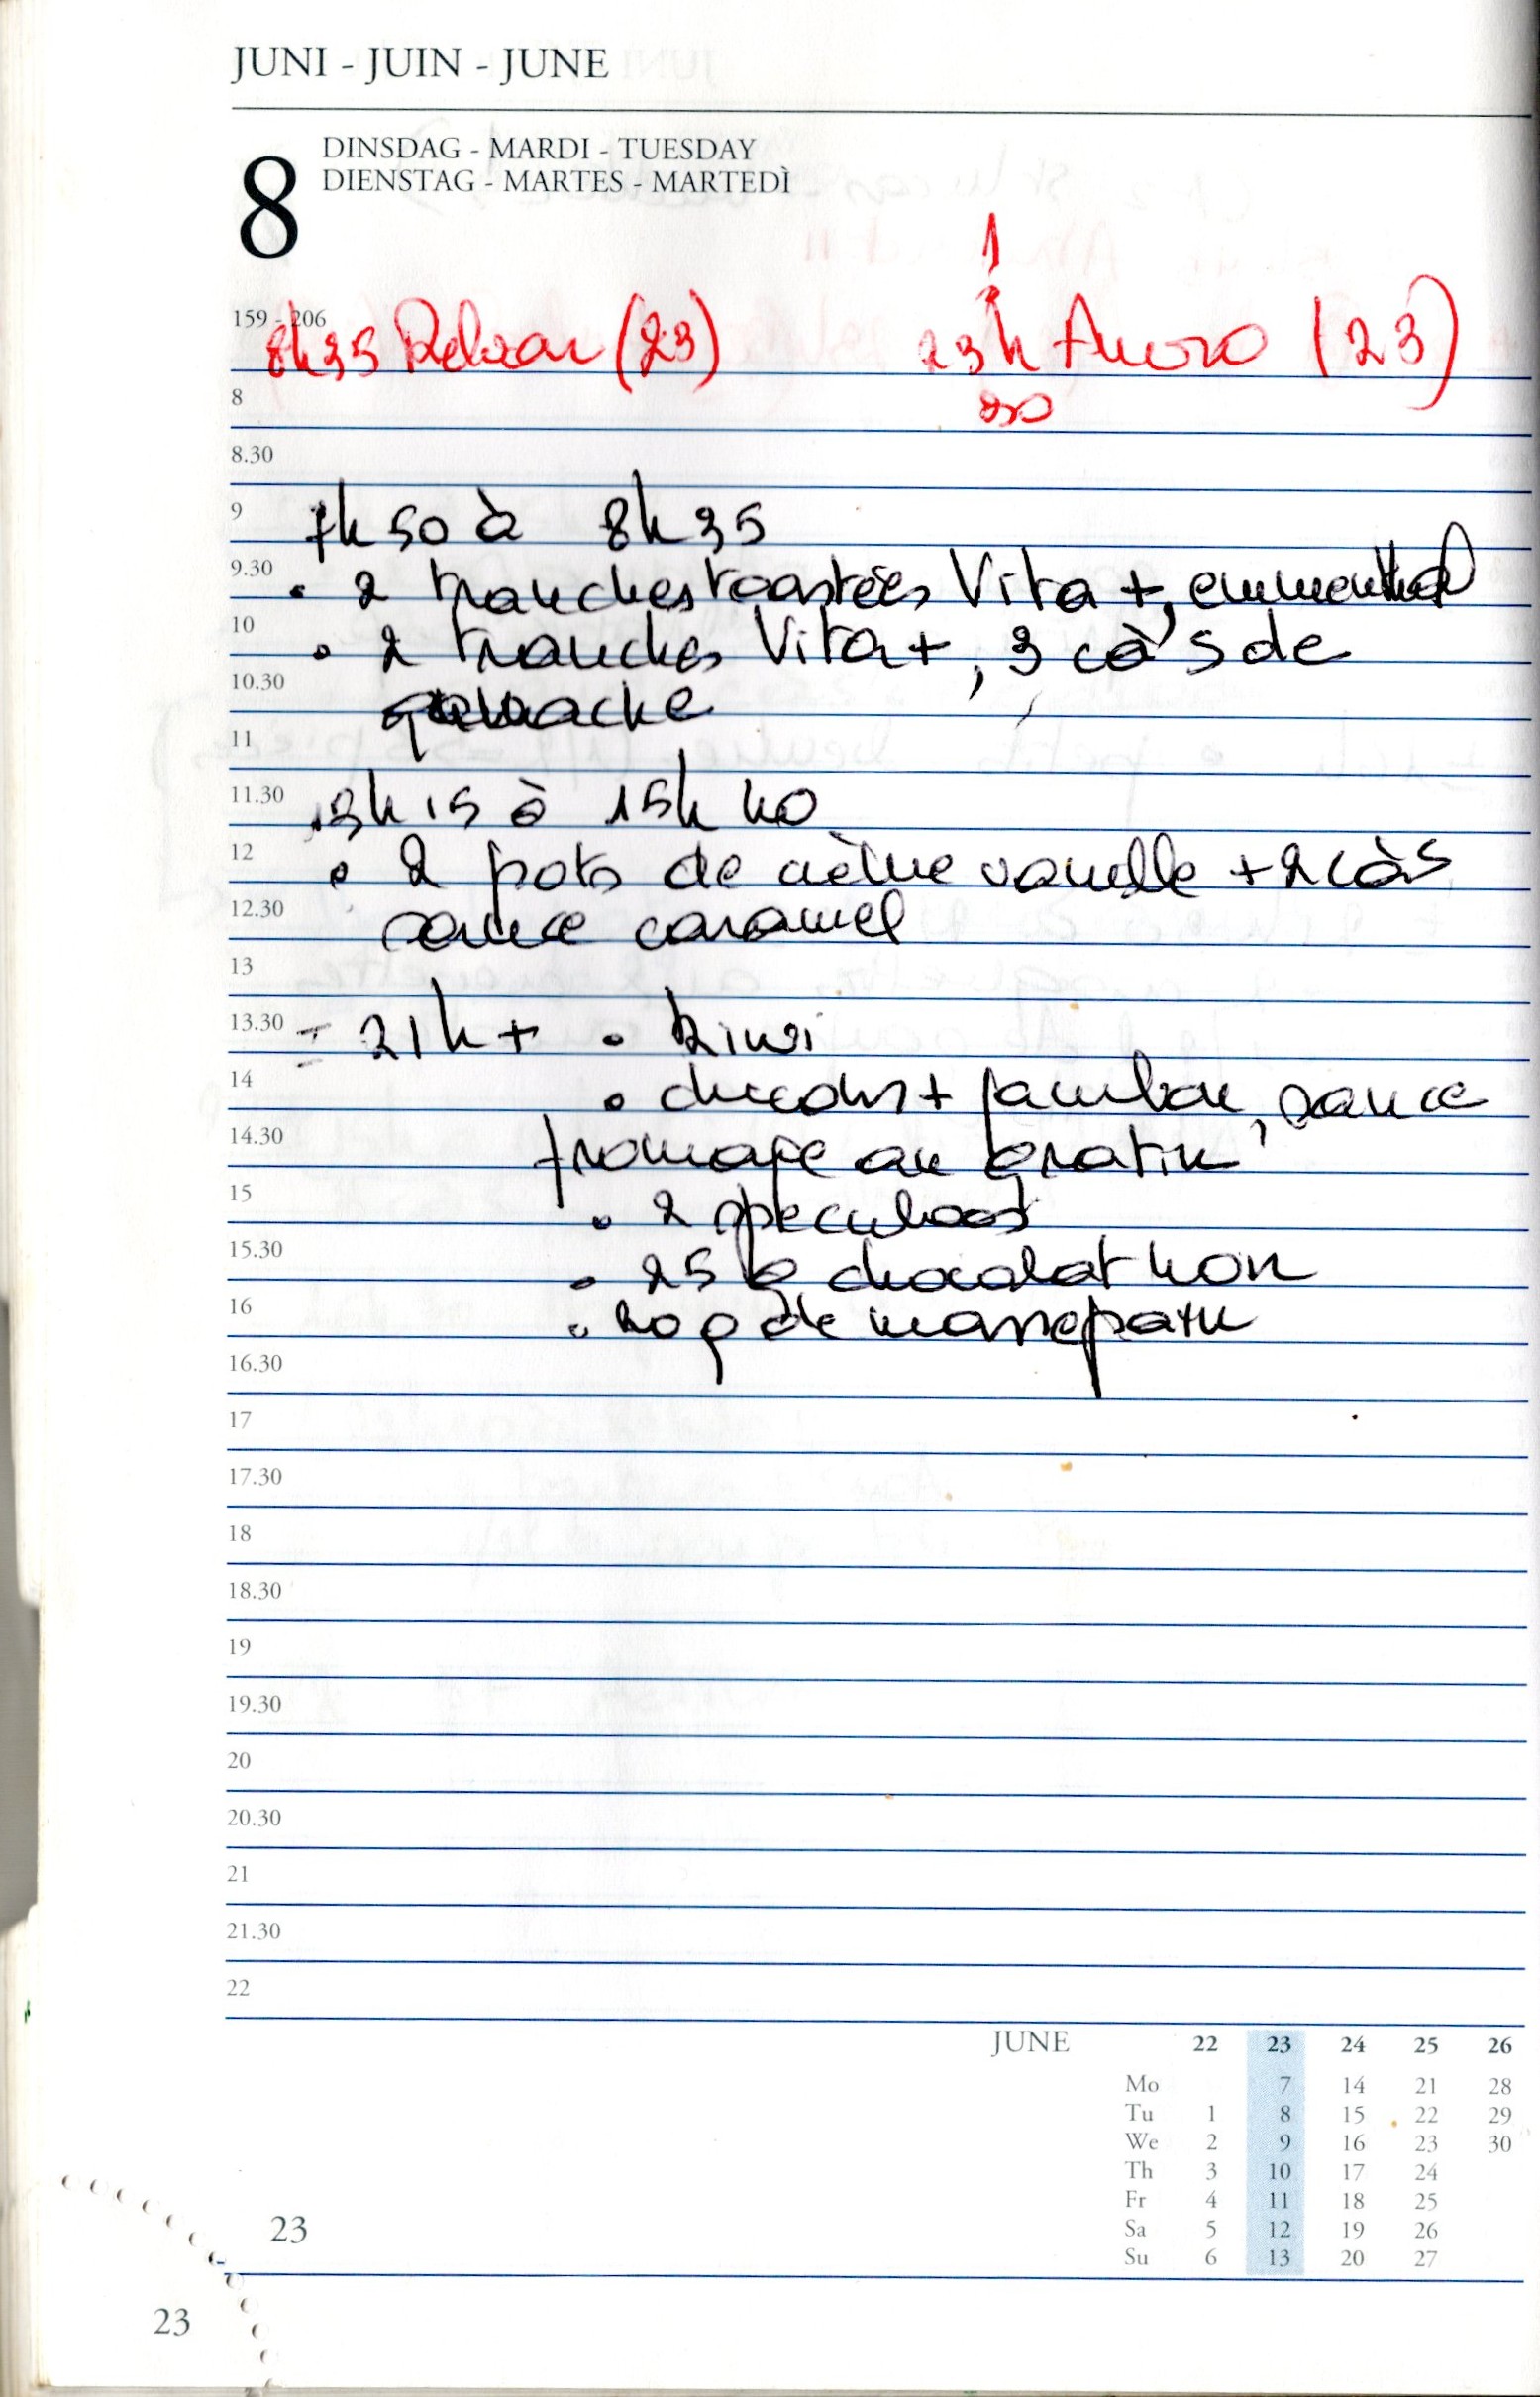 JUNI - JUIN - JUNE
8
DINSDAG - MARDI - TUESDAY
DIENSTAG - MARTES - MARTEDÌ
159 - 206
1
8h35 (23) 23h (23)
30
8
8.30
9 7h50 à 8h35
9.30 • 2 tranches toastées Vita +, emmenthal
10 • 2 tranches Vita +, 3 cà s de
10.30
11
11.30 13h15 à 15h40
12 • 2 pots de crème vanille + 2 càs
12.30 sauce caramel
13
13.30 21h + • kiwi
14 • chicons + jambon, sauce
14.30 fromage au gratin
15 • 2 speculoos
15.30 • 25 g chocolat noir
16 • 20 g de massepain
16.30
17
17.30
18
18.30
19
19.30
20
20.30
21
21.30
22
JUNE 22 23 24 25 26
Mo 7 14 21 28
Tu 1 8 15 22 29
We 2 9 16 23 30
Th 3 10 17 24
Fr 4 11 18 25
Sa 5 12 19 26
Su 6 13 20 27
23
23